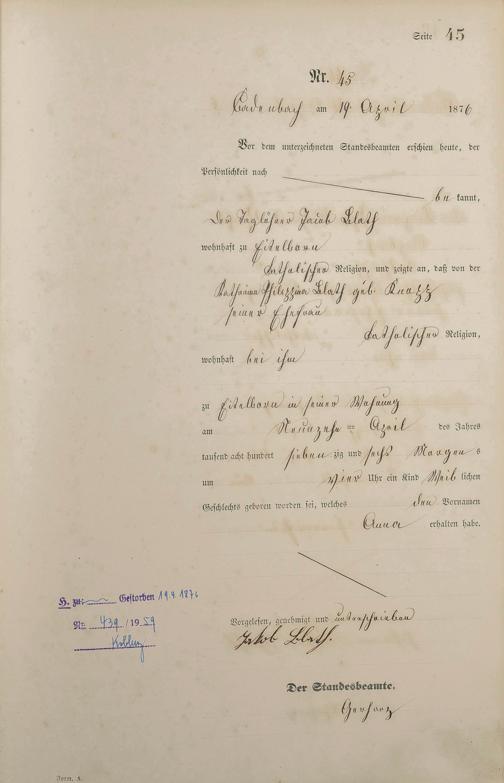 Seite 45
Nr. 45
Cadenbach am 19 April 1876
Vor dem unterzeichneten Standesbeamten erschien heute, der
Persönlichkeit nach
be kannt,
der Taglöhner Jacob Blath
wohnhaft zu Eitelborn
katholischer Religion, und zeigte an, daß von der
Katharina Philippina Blath geb. Knapp
seiner Ehefrau
katholischer Religion,
wohnhaft bei ihm
zu Eitelborn in seiner Wohnung
am Neunzehn = April des Jahres
tausend acht hundert sieben zig und sechs Morgen s
um vier Uhr ein Kind Weib lichen
Geschlechts geboren worden sei, welches den Vornamen
Anna erhalten habe.
H. zu: Gestorben 19.4.1876
Nr. 439 / 1959
Koblenz
Vorgelesen, genehmigt und unterschrieben
Jakob Blath.
Der Standesbeamte.
Gerharz
Form. A.